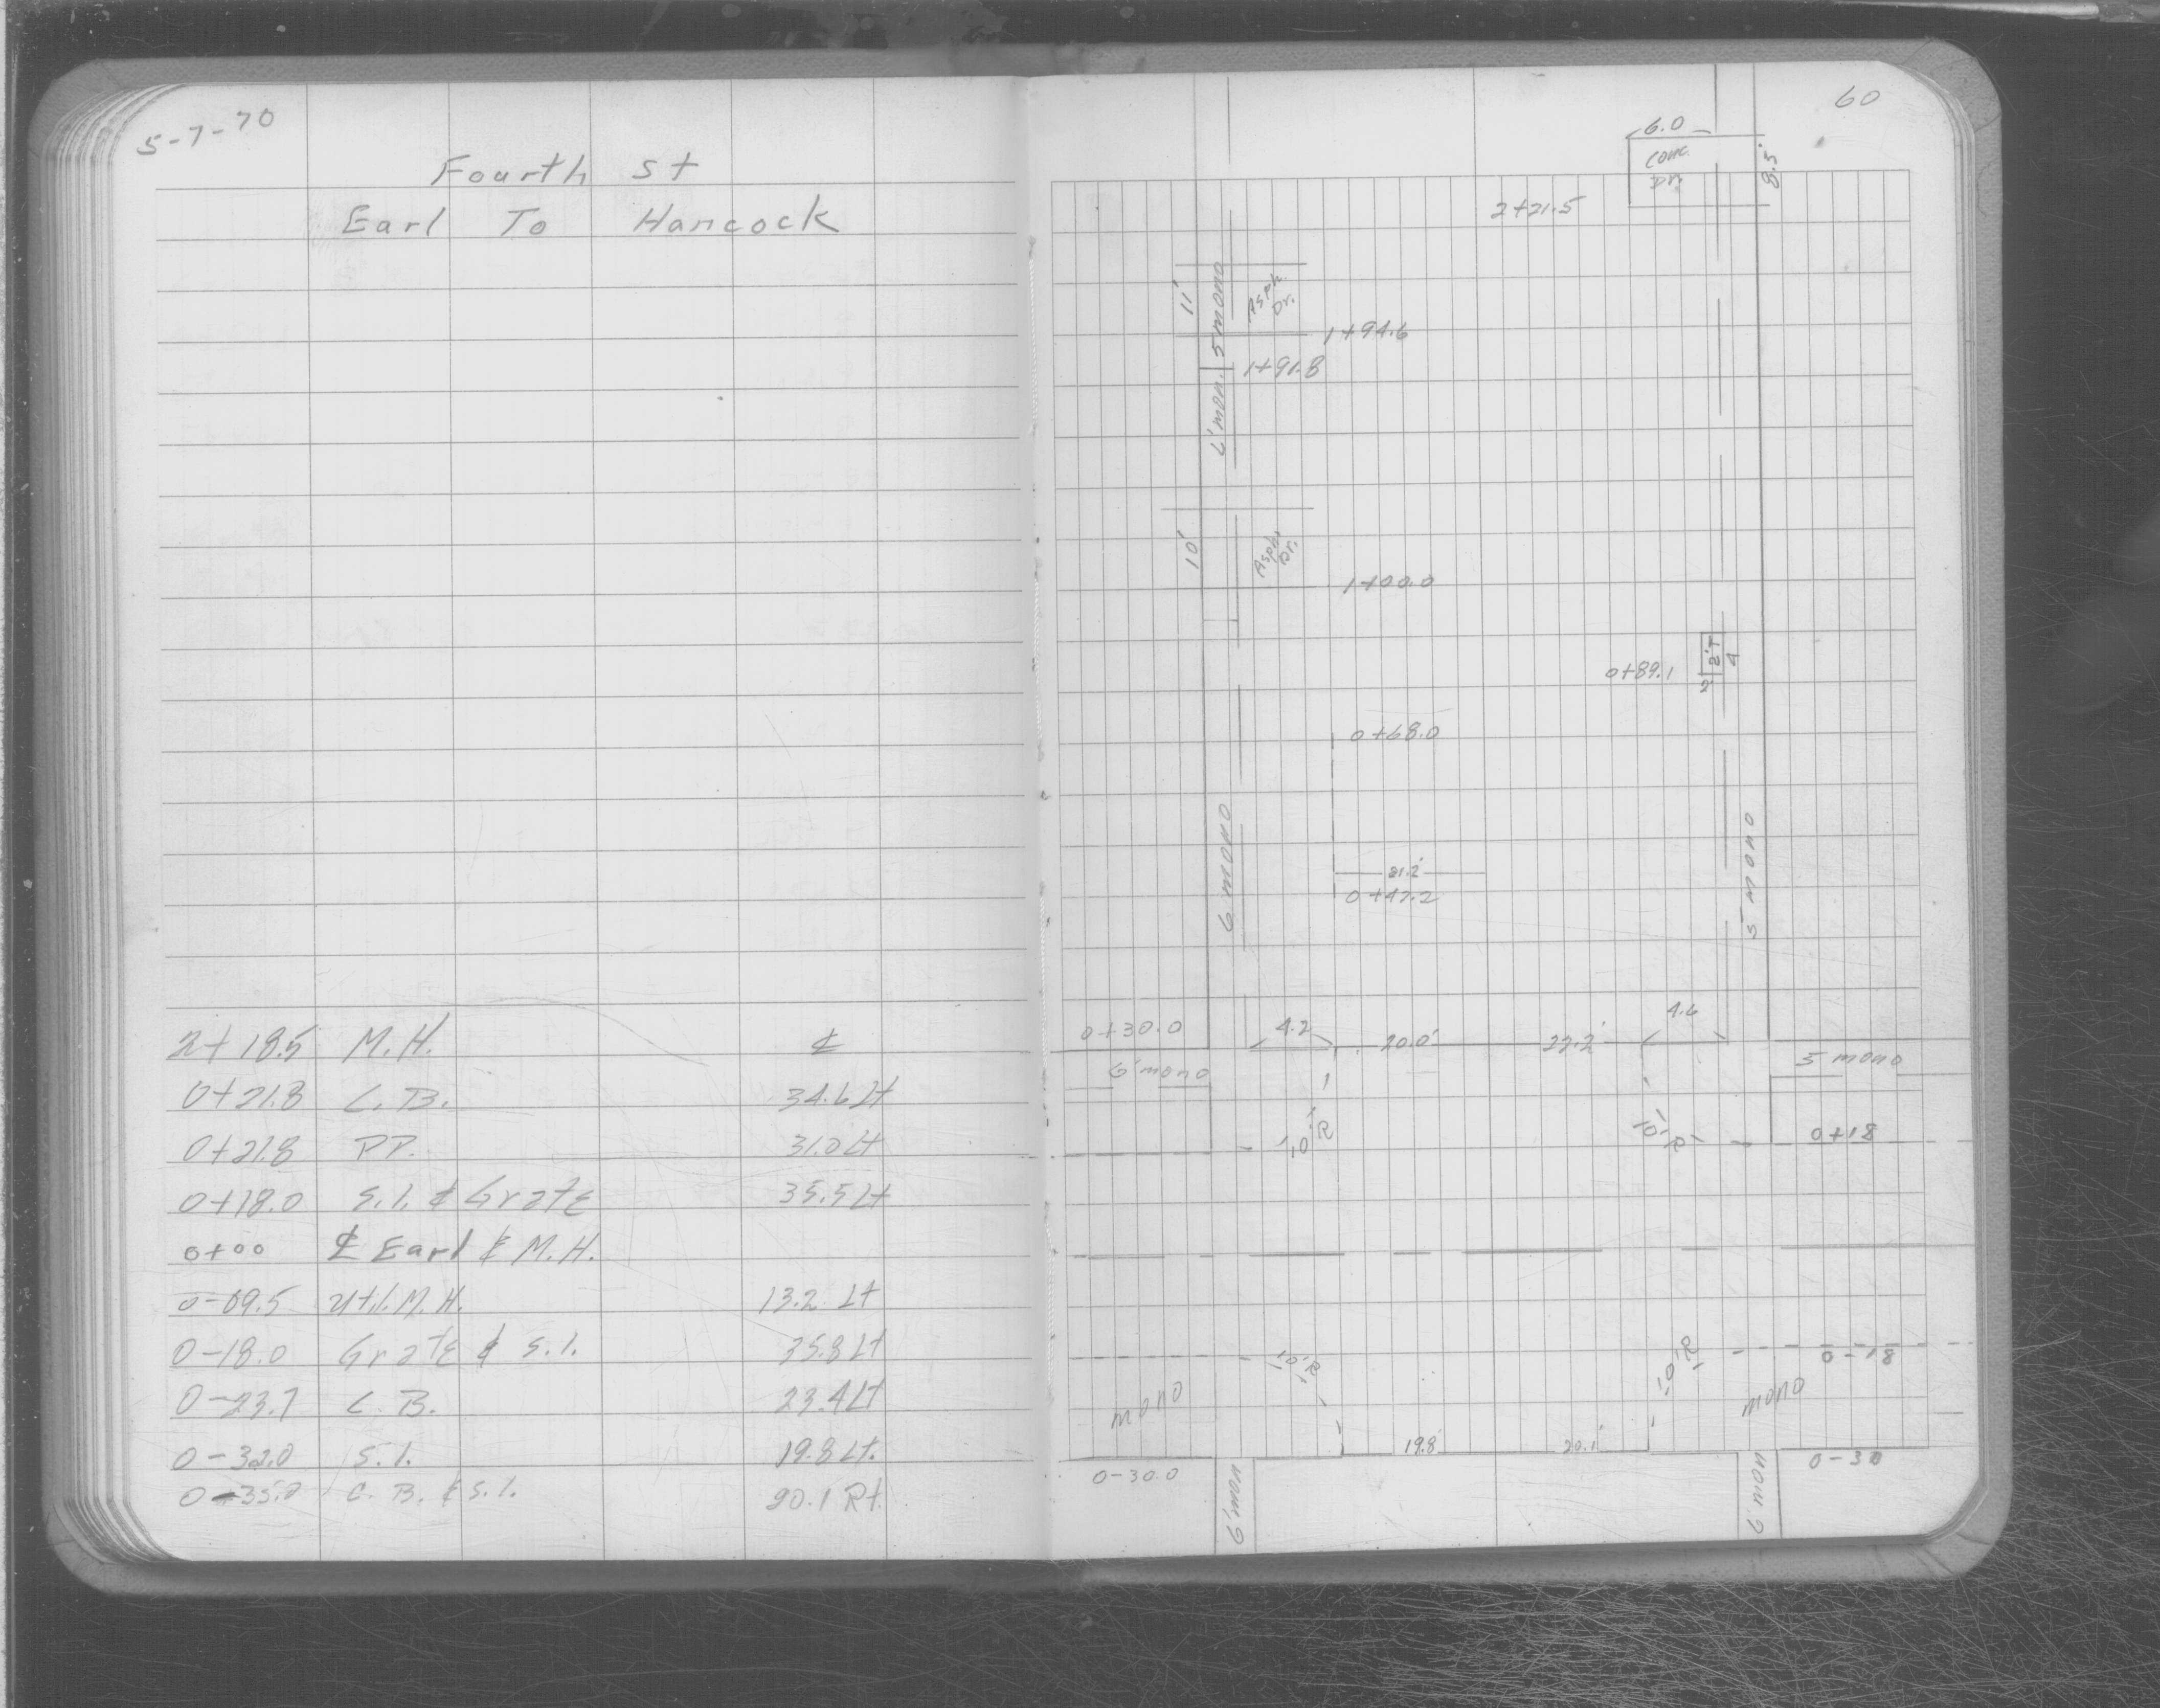 5-7-70
Fourth St
Earl To Hancock
2+18.5 M.H. ℄
0+21.8 C.B. 34.6 Lt
0+21.8 P.P. 31.0 Lt
0+18.0 S.I. & Grate 35.5 Lt
0+00 ℄ Earl & M.H.
0-09.5 Util. M.H. 13.2 Lt
0-18.0 Grate & S.I. 35.8 Lt
0-23.7 C.B. 23.4 Lt
0-32.0 S.I. 19.8 Lt.
0-35.0 C.B. & S.I. 20.1 Rt.
60
6.0
Conc. Dr.
8.5'
2+21.5
11'
5 mono
Asph. Dr.
1+94.6
1+91.8
6' mon.
10'
Asph. Dr.
1+00.0
0+89.1
2'
2'T
4
0+68.0
6 mono
21.2'
0+47.2
5' mono
0+30.0
4.2
20.0'
22.2'
4.6
6' mono
5 mono
10' R
10' R
0+18
10' R
10' R
0-18
mono
mono
19.8'
20.1'
0-30.0
6' mon
6' mon
0-30